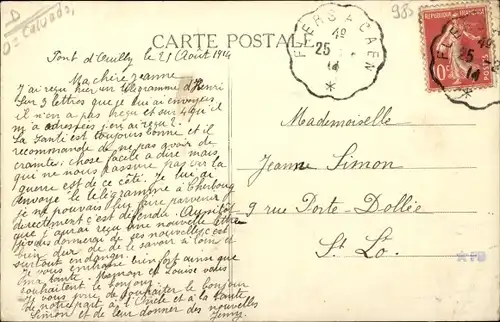 D
O = Calvados
CARTE POSTALE
985
FLERS A CAEN
4e
25
14
RÉPUBLIQUE FRANÇAISE
10c
FLE
25
14
Pont d'Ouilly le 21 Août 1914
Ma chère Jeanne
J'ai reçu hier un télégramme d'Henri
Sur 3 lettres que je lui ai envoyées
il n'en a pas reçu et sur 4 qu'il
m'a adressées j'en ai reçu 2.
La santé est toujours bonne et il
recommande de ne pas avoir de
crainte; chose facile à dire mais
qui ne nous rassure pas car la
guerre est de ce côté. Je lui ai
envoyé le télégramme à Cherbourg
je ne pouvais lui faire parvenir
directement c'est défendu. Aussitôt
que j'aurai reçu une nouvelle lettre
je vous donnerai de ses nouvelles c'est
bien dur de le savoir si loin et
surtout en danger.
Je vous embrasse bien fort ainsi que
ma tante. Maman et Louise vous
souhaitent le bonjour.
Je vous prie de souhaiter le bonjour
de notre part à l'Oncle et à la tante
Simon et de leur donner des nouvelles
Jenny
Mademoiselle
Jeanne Simon
9 rue Porte-Dollée
St Lo.